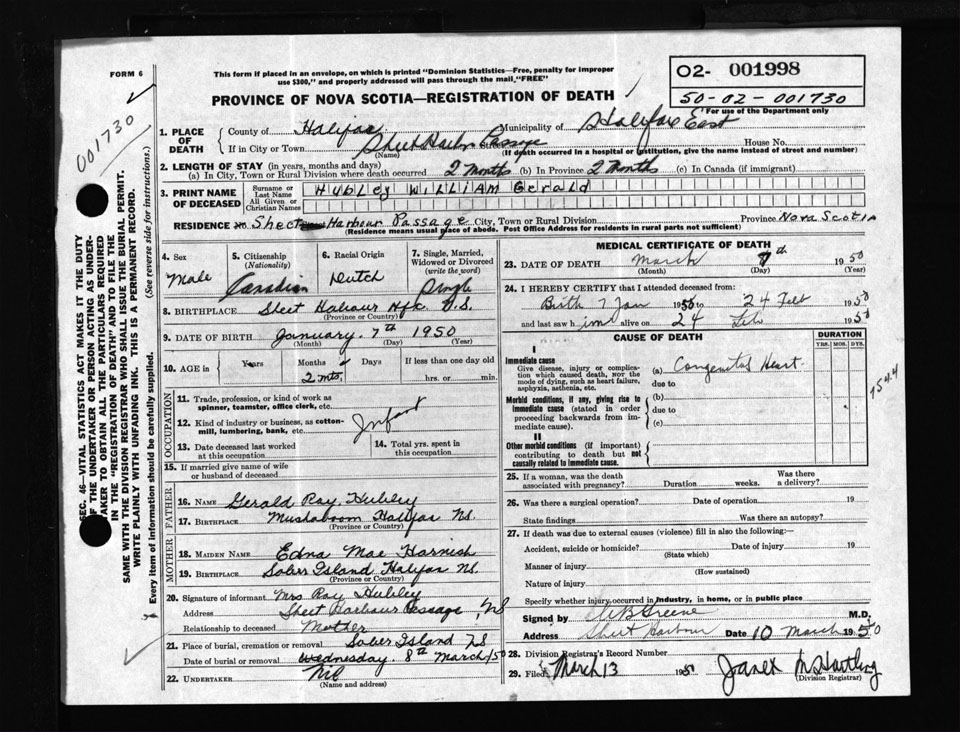 FORM 6
This form if placed in an envelope, on which is printed "Dominion Statistics—Free, penalty for improper
use $300," and properly addressed will pass through the mail, "FREE"
PROVINCE OF NOVA SCOTIA—REGISTRATION OF DEATH
02- 001998
50-02-001730
For use of the Department only
001730
SEC. 46—VITAL STATISTICS ACT MAKES IT THE DUTY
OF THE UNDERTAKER OR PERSON ACTING AS UNDER-
TAKER TO OBTAIN ALL THE PARTICULARS REQUIRED
IN THE "REGISTRATION OF DEATH" AND TO FILE THE
SAME WITH THE DIVISION REGISTRAR WHO SHALL ISSUE THE BURIAL PERMIT.
WRITE PLAINLY WITH UNFADING INK. THIS IS A PERMANENT RECORD.
Every item of information should be carefully supplied. (See reverse side for instructions.)
1. PLACE OF DEATH
County of Halifax Municipality of Halifax East
If in City or Town Sheet Harbour Passage House No.
(Name) (If death occurred in a hospital or institution, give the name instead of street and number)
2. LENGTH OF STAY (in years, months and days)
(a) In City, Town or Rural Division where death occurred 2 Months (b) In Province 2 Months (c) In Canada (if immigrant)
3. PRINT NAME OF DECEASED
Surname or Last Name
All Given or Christian Names
Hubley William Gerald
RESIDENCE Sheet Harbour Passage City, Town or Rural Division Province Nova Scotia
(Residence means usual place of abode. Post Office Address for residents in rural parts not sufficient)
4. Sex
Male
5. Citizenship (Nationality)
Canadian
6. Racial Origin
Dutch
7. Single, Married, Widowed or Divorced (write the word)
Single
8. BIRTHPLACE Sheet Harbour Hfx. N.S.
(Province or Country)
9. DATE OF BIRTH January 7th 1950
(Month) (Day) (Year)
10. AGE in Years Months Days If less than one day old
2 mts. hrs. or min.
OCCUPATION
11. Trade, profession, or kind of work as
spinner, teamster, office clerk, etc.
12. Kind of industry or business, as cotton-
mill, lumbering, bank, etc.
Infant
13. Date deceased last worked
at this occupation
14. Total yrs. spent in
this occupation
15. If married give name of wife
or husband of deceased
FATHER
16. NAME Gerald Ray Hubley
17. BIRTHPLACE Mushaboom Halifax NS.
(Province or Country)
MOTHER
18. MAIDEN NAME Edna Mae Harnish
19. BIRTHPLACE Sober Island Halifax NS.
(Province or Country)
20. Signature of informant Mrs Ray Hubley
Address Sheet Harbour Passage, NS
Relationship to deceased Mother
21. Place of burial, cremation or removal Sober Island NS
Date of burial or removal Wednesday. 8th March/50
22. UNDERTAKER Nil
(Name and address)
MEDICAL CERTIFICATE OF DEATH
23. DATE OF DEATH March 7th 1950
(Month) (Day) (Year)
24. I HEREBY CERTIFY that I attended deceased from:
Birth 7 Jan 1950 to 24 Feb 1950
and last saw him alive on 24 Feb 1950
CAUSE OF DEATH
DURATION
YRS. MOS. DYS.
I
Immediate cause
Give disease, injury or complica-
tion which caused death, not the
mode of dying, such as heart failure,
asphyxia, asthenia, etc.
(a) Congenital Heart.
due to
Morbid conditions, if any, giving rise to
immediate cause (stated in order
proceeding backwards from im-
mediate cause).
(b)
due to
(c)
7544
II
Other morbid conditions (if important)
contributing to death but not
causally related to immediate cause.
25. If a woman, was the death
associated with pregnancy? Duration weeks. Was there
a delivery?
26. Was there a surgical operation? Date of operation 19
State findings Was there an autopsy?
27. If death was due to external causes (violence) fill in also the following:—
Accident, suicide or homicide? Date of injury 19
(State which)
Manner of injury
(How sustained)
Nature of injury
Specify whether injury occurred in industry, in home, or in public place
Signed by Greene M.D.
Address Sheet Harbour Date 10 March 1950
28. Division Registrar's Record Number
29. Filed March 13 1950 Janet Hartling
(Division Registrar)